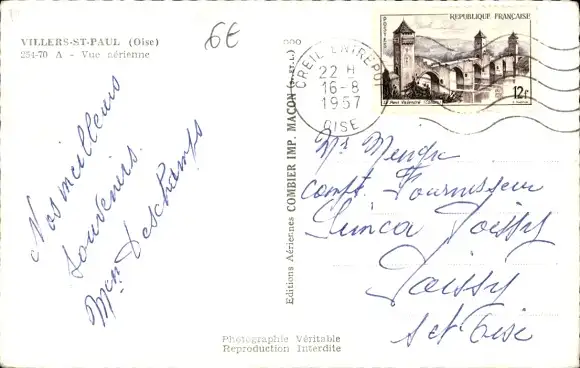 VILLERS-ST-PAUL (Oise)
254-70 A - Vue aérienne
6€
Nos meilleurs
souvenirs.
Deschamps
Editions Aériennes COMBIER IMP. MACON (S.-et-L.)
CREIL ENTREPOT
22 H
16-8
1957
OISE
REPUBLIQUE FRANÇAISE
Le Pont Valentré (Cahors)
12F
Mr
Compt. Fournisseur
Simca Poissy
Poissy
S et Oise
Photographie Véritable
Reproduction Interdite